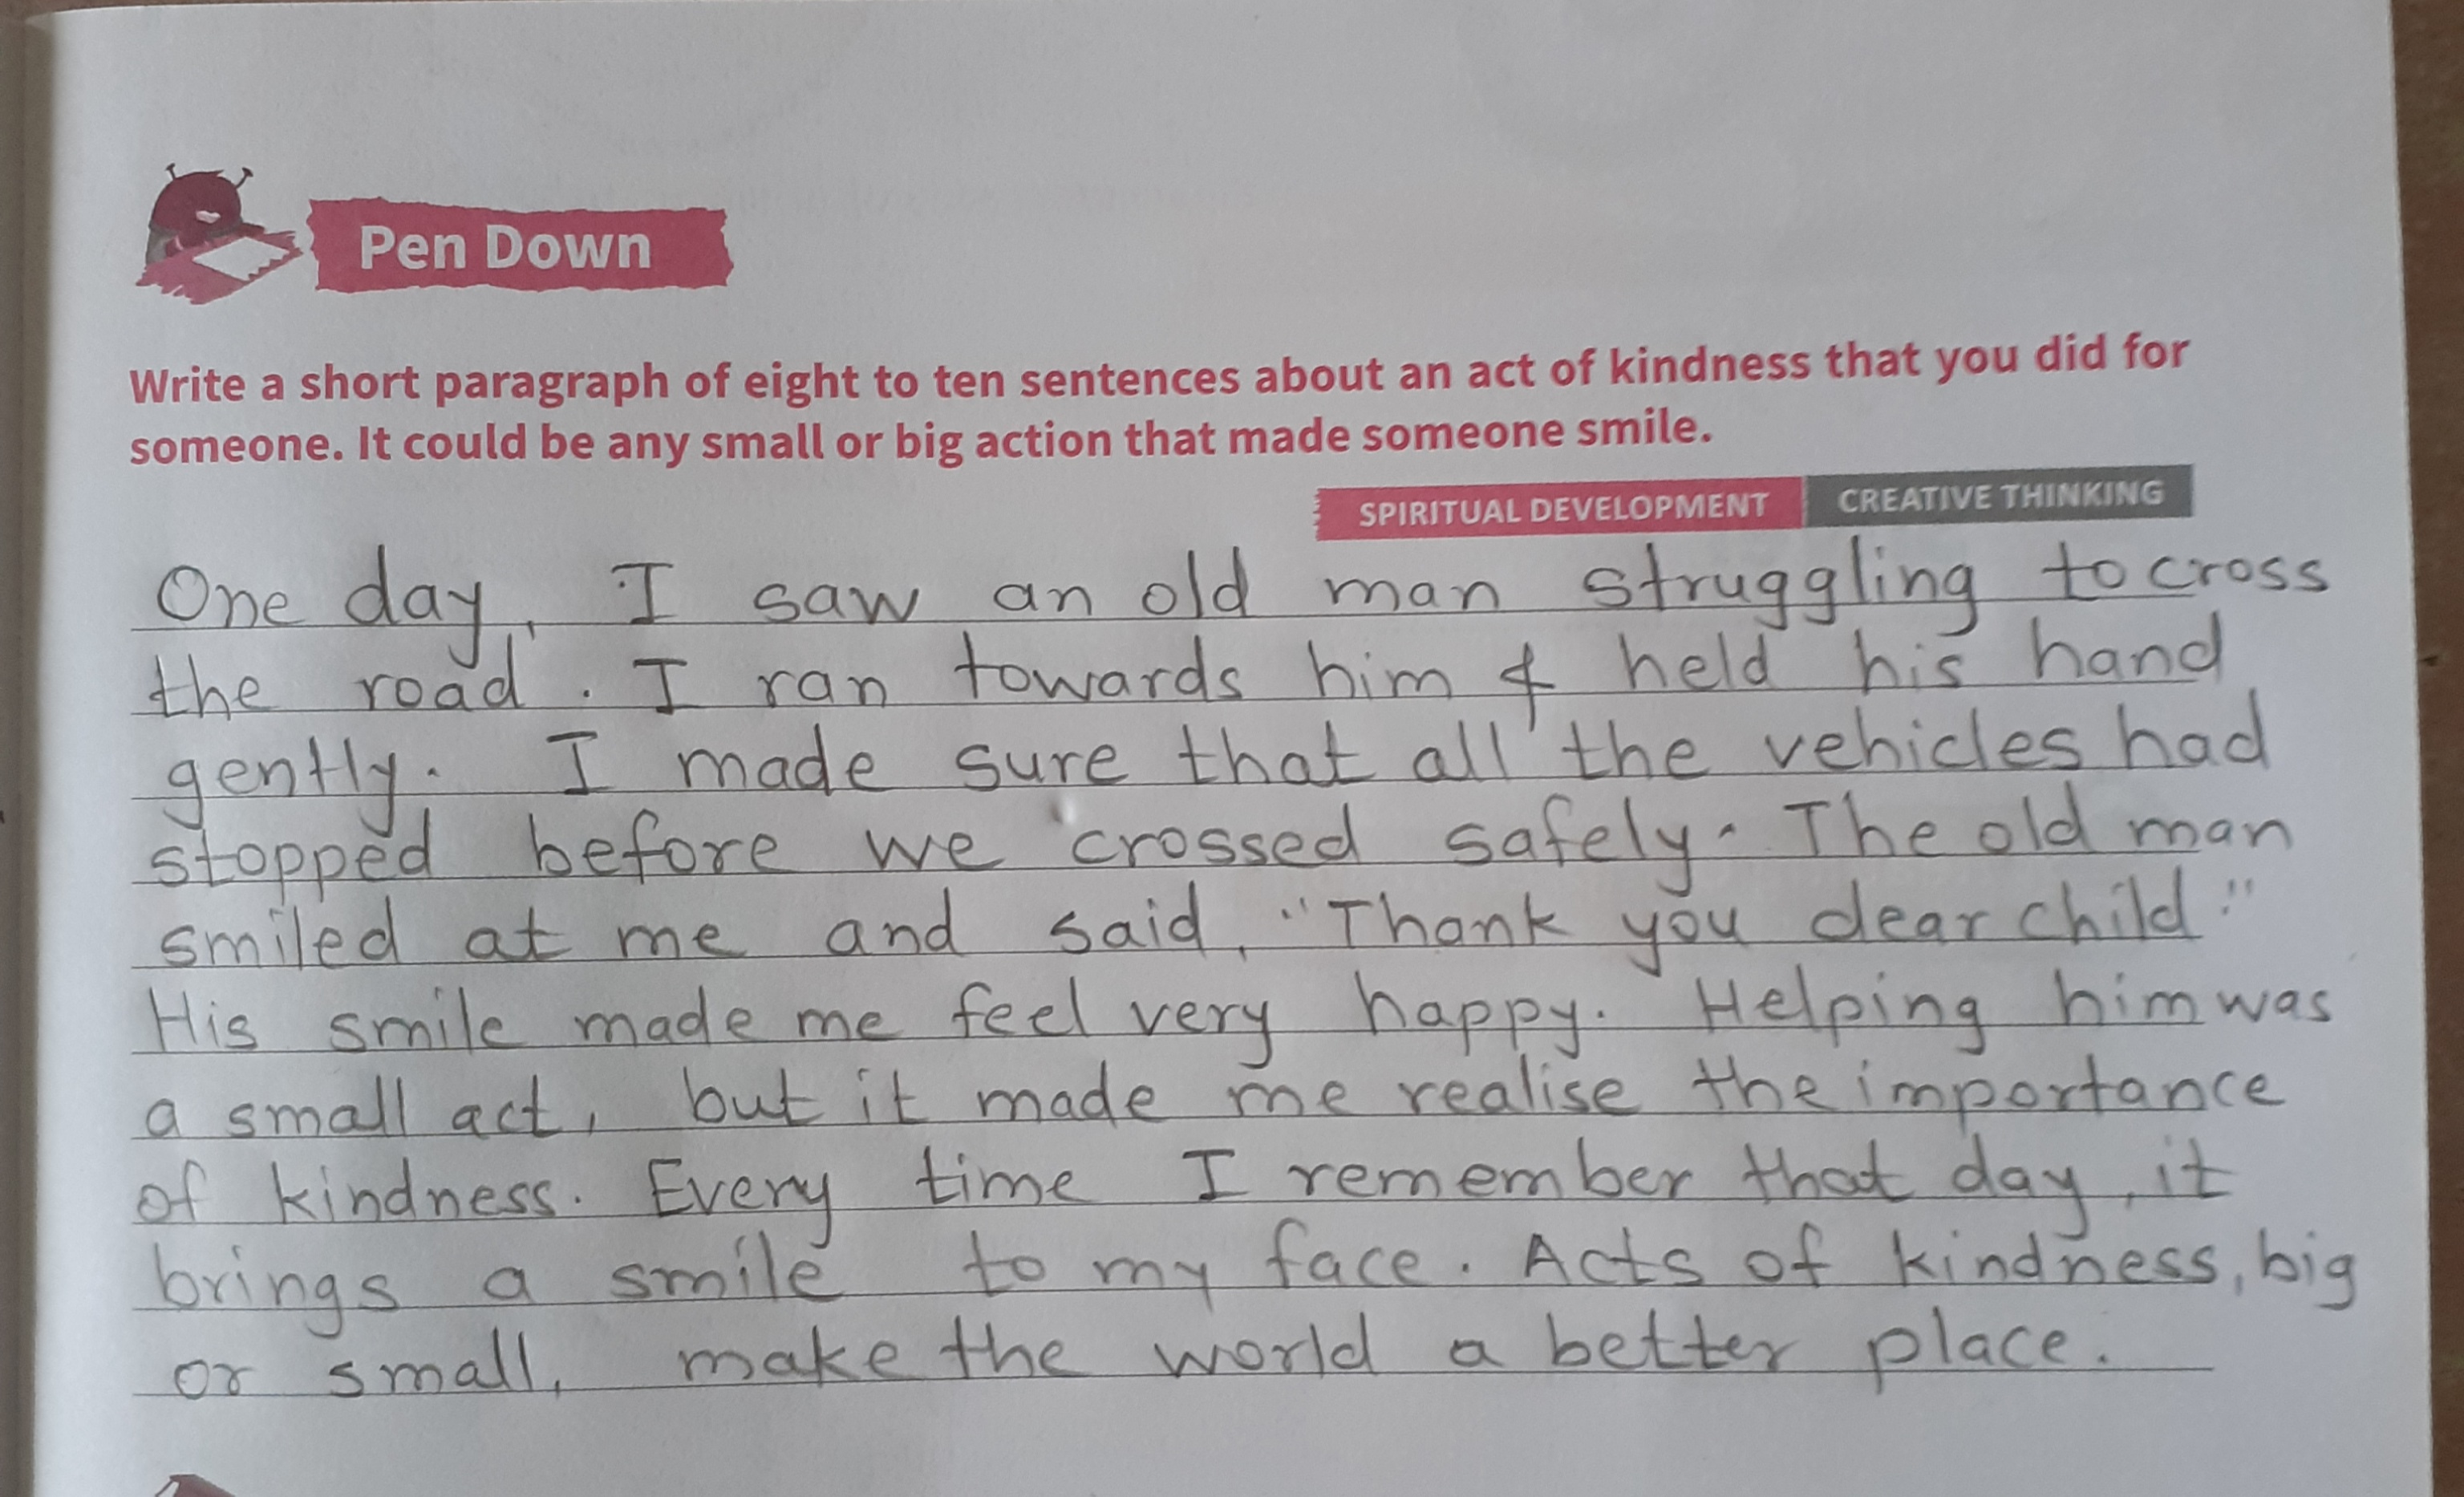 Pen Down
Write a short paragraph of eight to ten sentences about an act of kindness that you did for
someone. It could be any small or big action that made someone smile.
SPIRITUAL DEVELOPMENT CREATIVE THINKING
One day, I saw an old man struggling to cross
the road. I ran towards him & held his hand
gently. I made sure that all the vehicles had
stopped before we crossed safely. The old man
smiled at me and said, "Thank you dear child."
His smile made me feel very happy. Helping him was
a small act, but it made me realise the importance
of kindness. Every time I remember that day, it
brings a smile to my face. Acts of kindness, big
or small, make the world a better place.